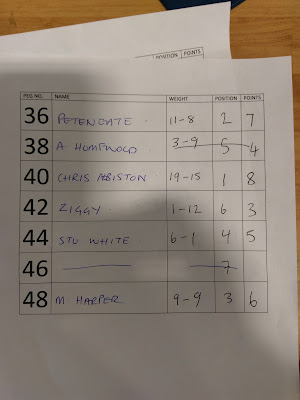 POSITION POINTS
PEG NO. NAME WEIGHT POSITION POINTS
36 PETE NOATE 11-8 2 7
38 A HUMFWOLD 3-9 5 4
40 CHRIS ABISTON 19-15 1 8
42 ZIGGY 1-12 6 3
44 STU WHITE 6-1 4 5
46 7
48 M HARPER 9-9 3 6